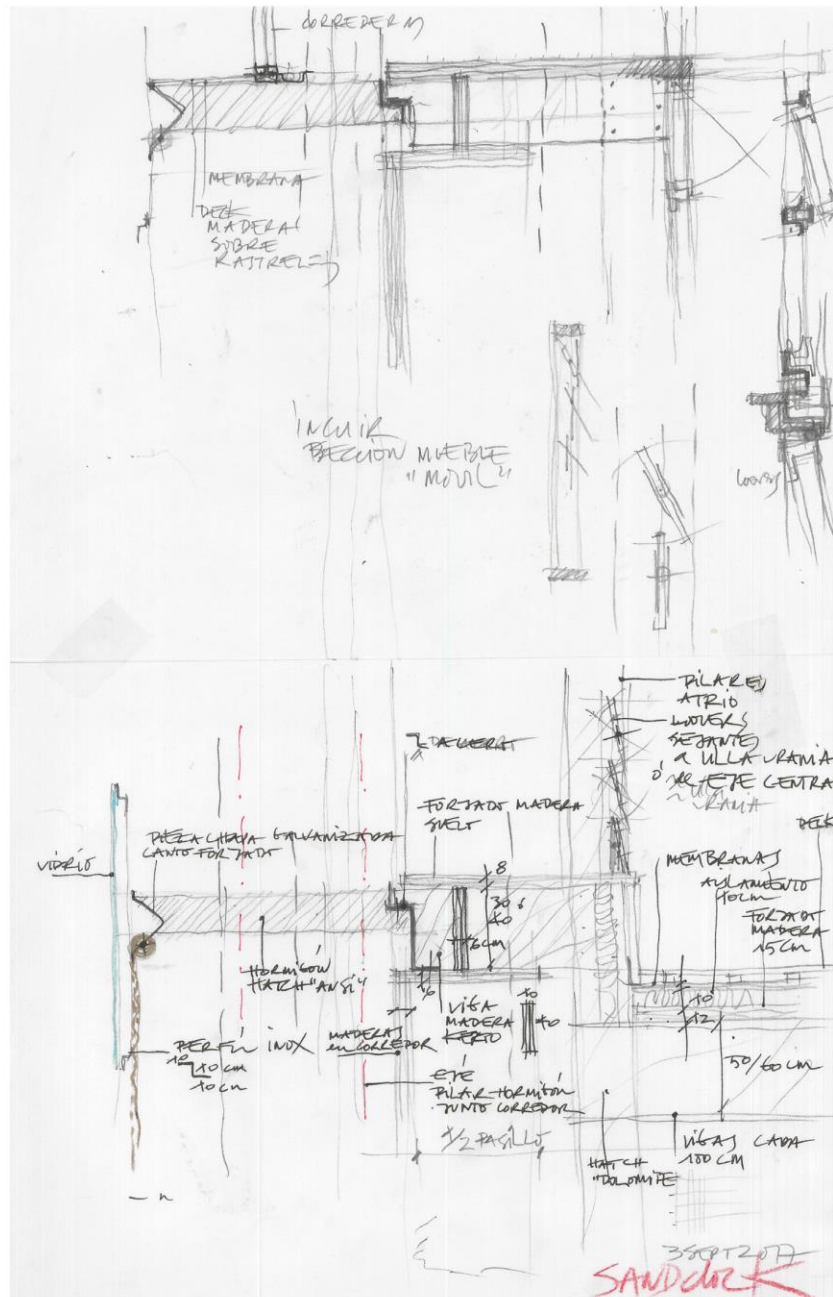 CORREDERA
MEMBRANA
DECK
MADERA
SOBRE
RASTRELES
INCLUIR
SECCIÓN MUEBLE
"MOVIL"
LOOVERS
PILARES
ATRIO
LOOVERS
SEJANTES
a VILLA URANIA
ó EJE CENTRAL
URANIA
DECK
FORJADO MADERA
SUELO
VIDRIO
PIEZA CHAPA GALVANIZADA
CANTO FORJADO
8
30 ó
40
6CM
MEMBRANAS
AISLAMIENTO
10CM
FORJADO
MADERA
15CM
HORMIGÓN
HATCH "ANSI"
6
VIGA
MADERA
KERTO
10
40
10
12
PERFIL INOX
10
10 CM
10 CM
MADERAS
en CORREDOR
EJE
PILAR HORMIGÓN
JUNTO CORREDOR
1/2 PASILLO
50/60 CM
HATCH
"DOLOMITE"
VIGAS CADA
100 CM
3 SEPT 2017